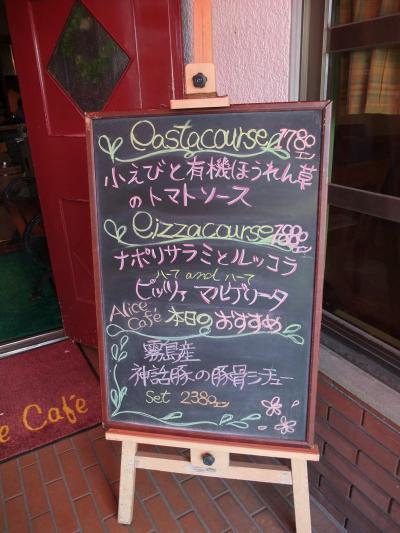 Pasta course 1780エン
小えびと有機ほうれん草
のトマトソース
Pizza course 1880エン
ナポリサラミとルッコラ
ハーフ and ハーフ
ピッツァ マルゲリータ
Alice Café 本日のおすすめ
霧島産
神話豚の豚骨シチュー
Set 2380エン
e Café